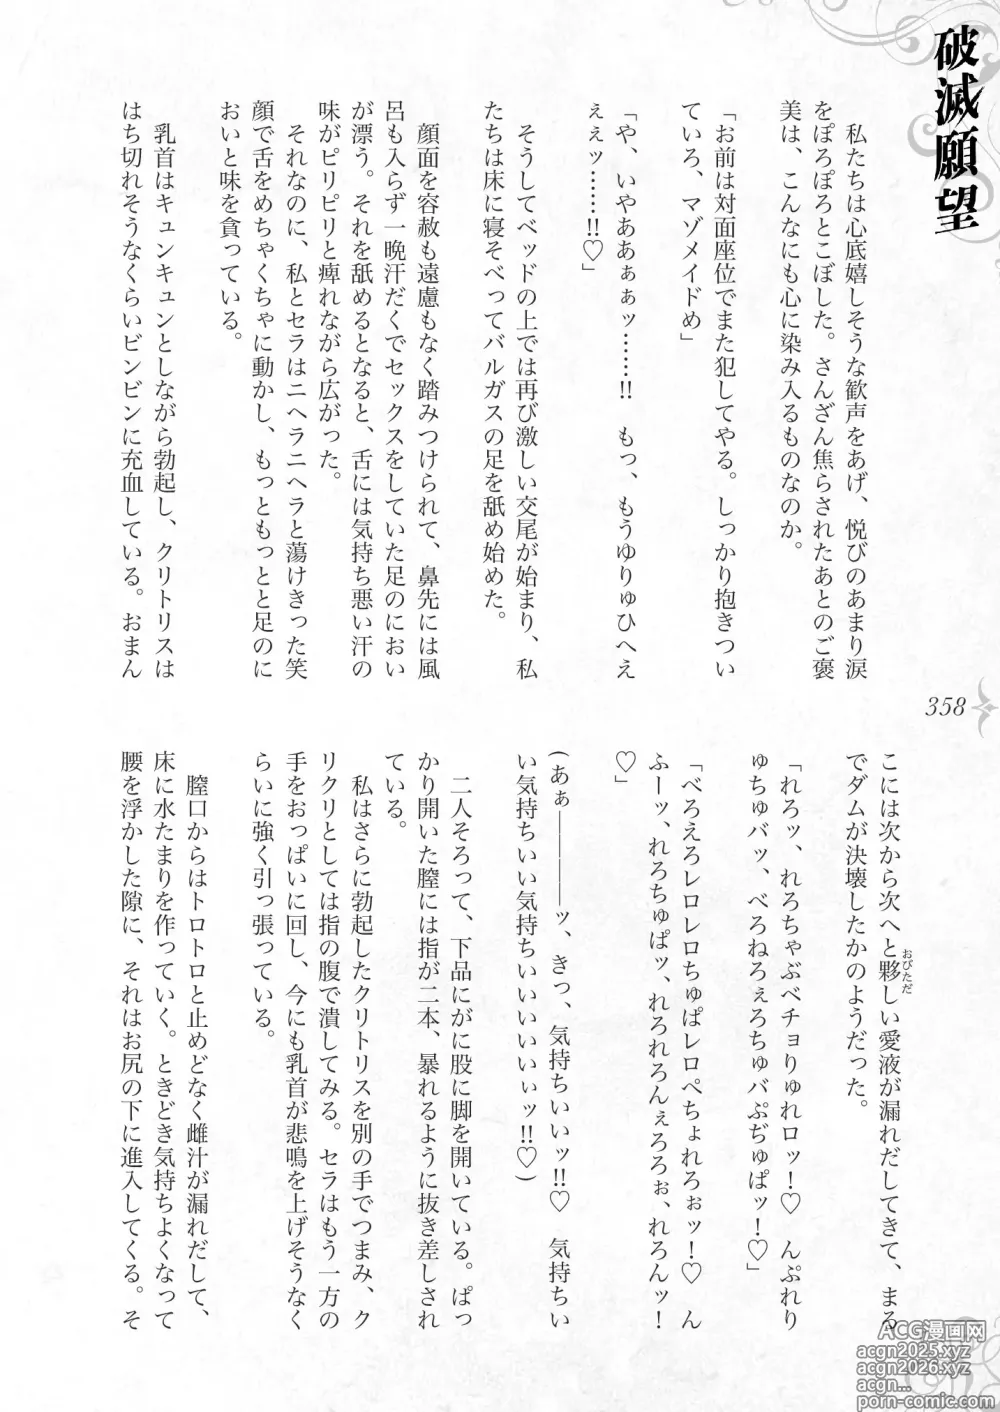 破滅願望
私たちは心底嬉しそうな歓声をあげ、悦びのあまり涙
をぽろぽろとこぼした。さんざん焦らされたあとのご褒
美は、こんなにも心に染み入るものなのか。
「お前は対面座位でまた犯してやる。しっかり抱きつい
ていろ、マゾメイドめ」
「や、いやああぁぁッ……!! もっ、もうゆりゅひへえ
ぇぇッ……!!♡」
そうしてベッドの上では再び激しい交尾が始まり、私
たちは床に寝そべってバルガスの足を舐め始めた。
顔面を容赦も遠慮もなく踏みつけられて、鼻先には風
呂も入らず一晩汗だくでセックスをしていた足のにおい
が漂う。それを舐めるとなると、舌には気持ち悪い汗の
味がピリピリと痺れながら広がった。
それなのに、私とセラはニヘラニヘラと蕩けきった笑
顔で舌をめちゃくちゃに動かし、もっともっとと足のに
おいと味を貪っている。
乳首はキュンキュンとしながら勃起し、クリトリスは
はち切れそうなくらいビンビンに充血している。おまん
358
こには次から次へと夥しい愛液が漏れだしてきて、まる
おびただ
でダムが決壊したかのようだった。
「れろッ、れろちゃぶベチョりゅれロッ！♡ んぷれり
ゅちゅバッ、べろねろぇろちゅバぷぢゅぱッ！♡」
「べろえろレロレロちゅぱレロペちょれろぉッ！♡ ん
ふーッ、れろちゅぱッ、れろれろんぇろろぉ、れろんッ！
♡」
(あぁ――――ッ、きっ、気持ちいいッ!!♡ 気持ちい
い気持ちいい気持ちいいいいいぃッ!!♡)
二人そろって、下品にがに股に脚を開いている。ぱっ
かり開いた膣には指が二本、暴れるように抜き差しされ
ている。
私はさらに勃起したクリトリスを別の手でつまみ、ク
リクリとしては指の腹で潰してみる。セラはもう一方の
手をおっぱいに回し、今にも乳首が悲鳴を上げそうなく
らいに強く引っ張っている。
膣口からはトロトロと止めどなく雌汁が漏れだして、
床に水たまりを作っていく。ときどき気持ちよくなって
腰を浮かした隙に、それはお尻の下に進入してくる。そ
ACG漫画网
acgn2025.xyz
acgn2026.xyz
acgn...
porn-comic.com